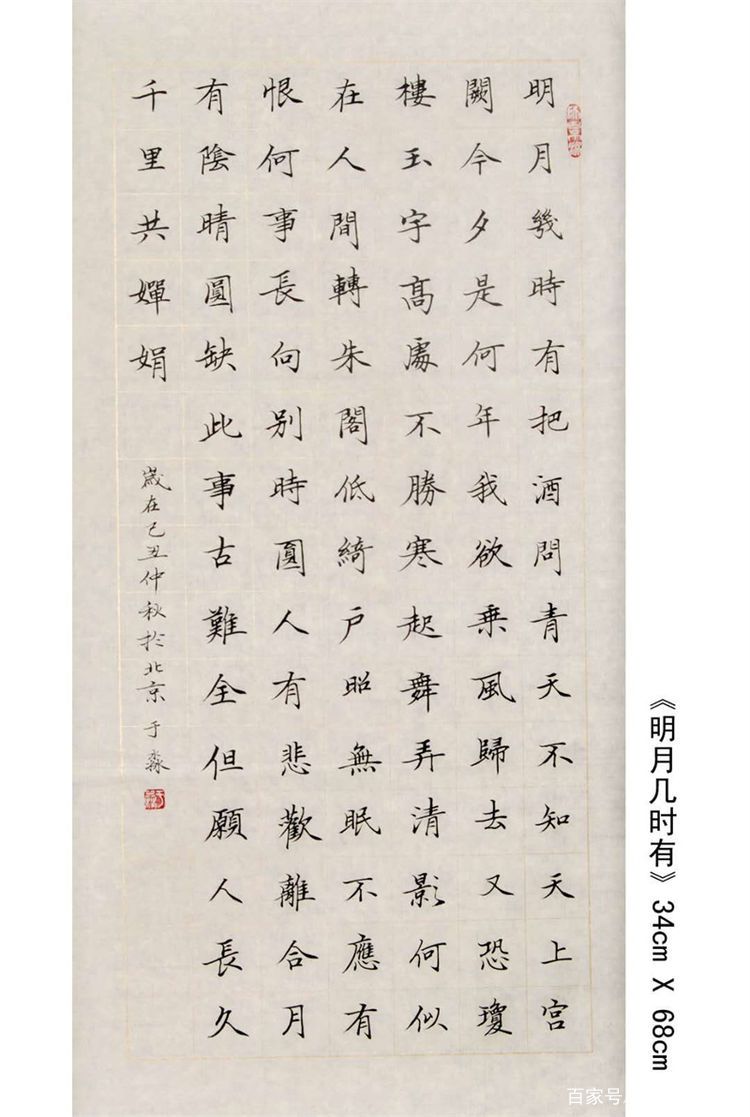 明月幾時有把酒問青天不知天上宮
闕今夕是何年我欲乗風歸去又恐瓊
樓玉宇高處不勝寒起舞弄清影何似
在人間轉朱閣低綺戶照無眠不應有
恨何事長向别時圓人有悲歡離合月
有陰晴圓缺此事古難全但願人長久
千里共嬋娟
歲在己丑仲秋於北京于淼
《明月几时有》34cm X 68cm
百家号